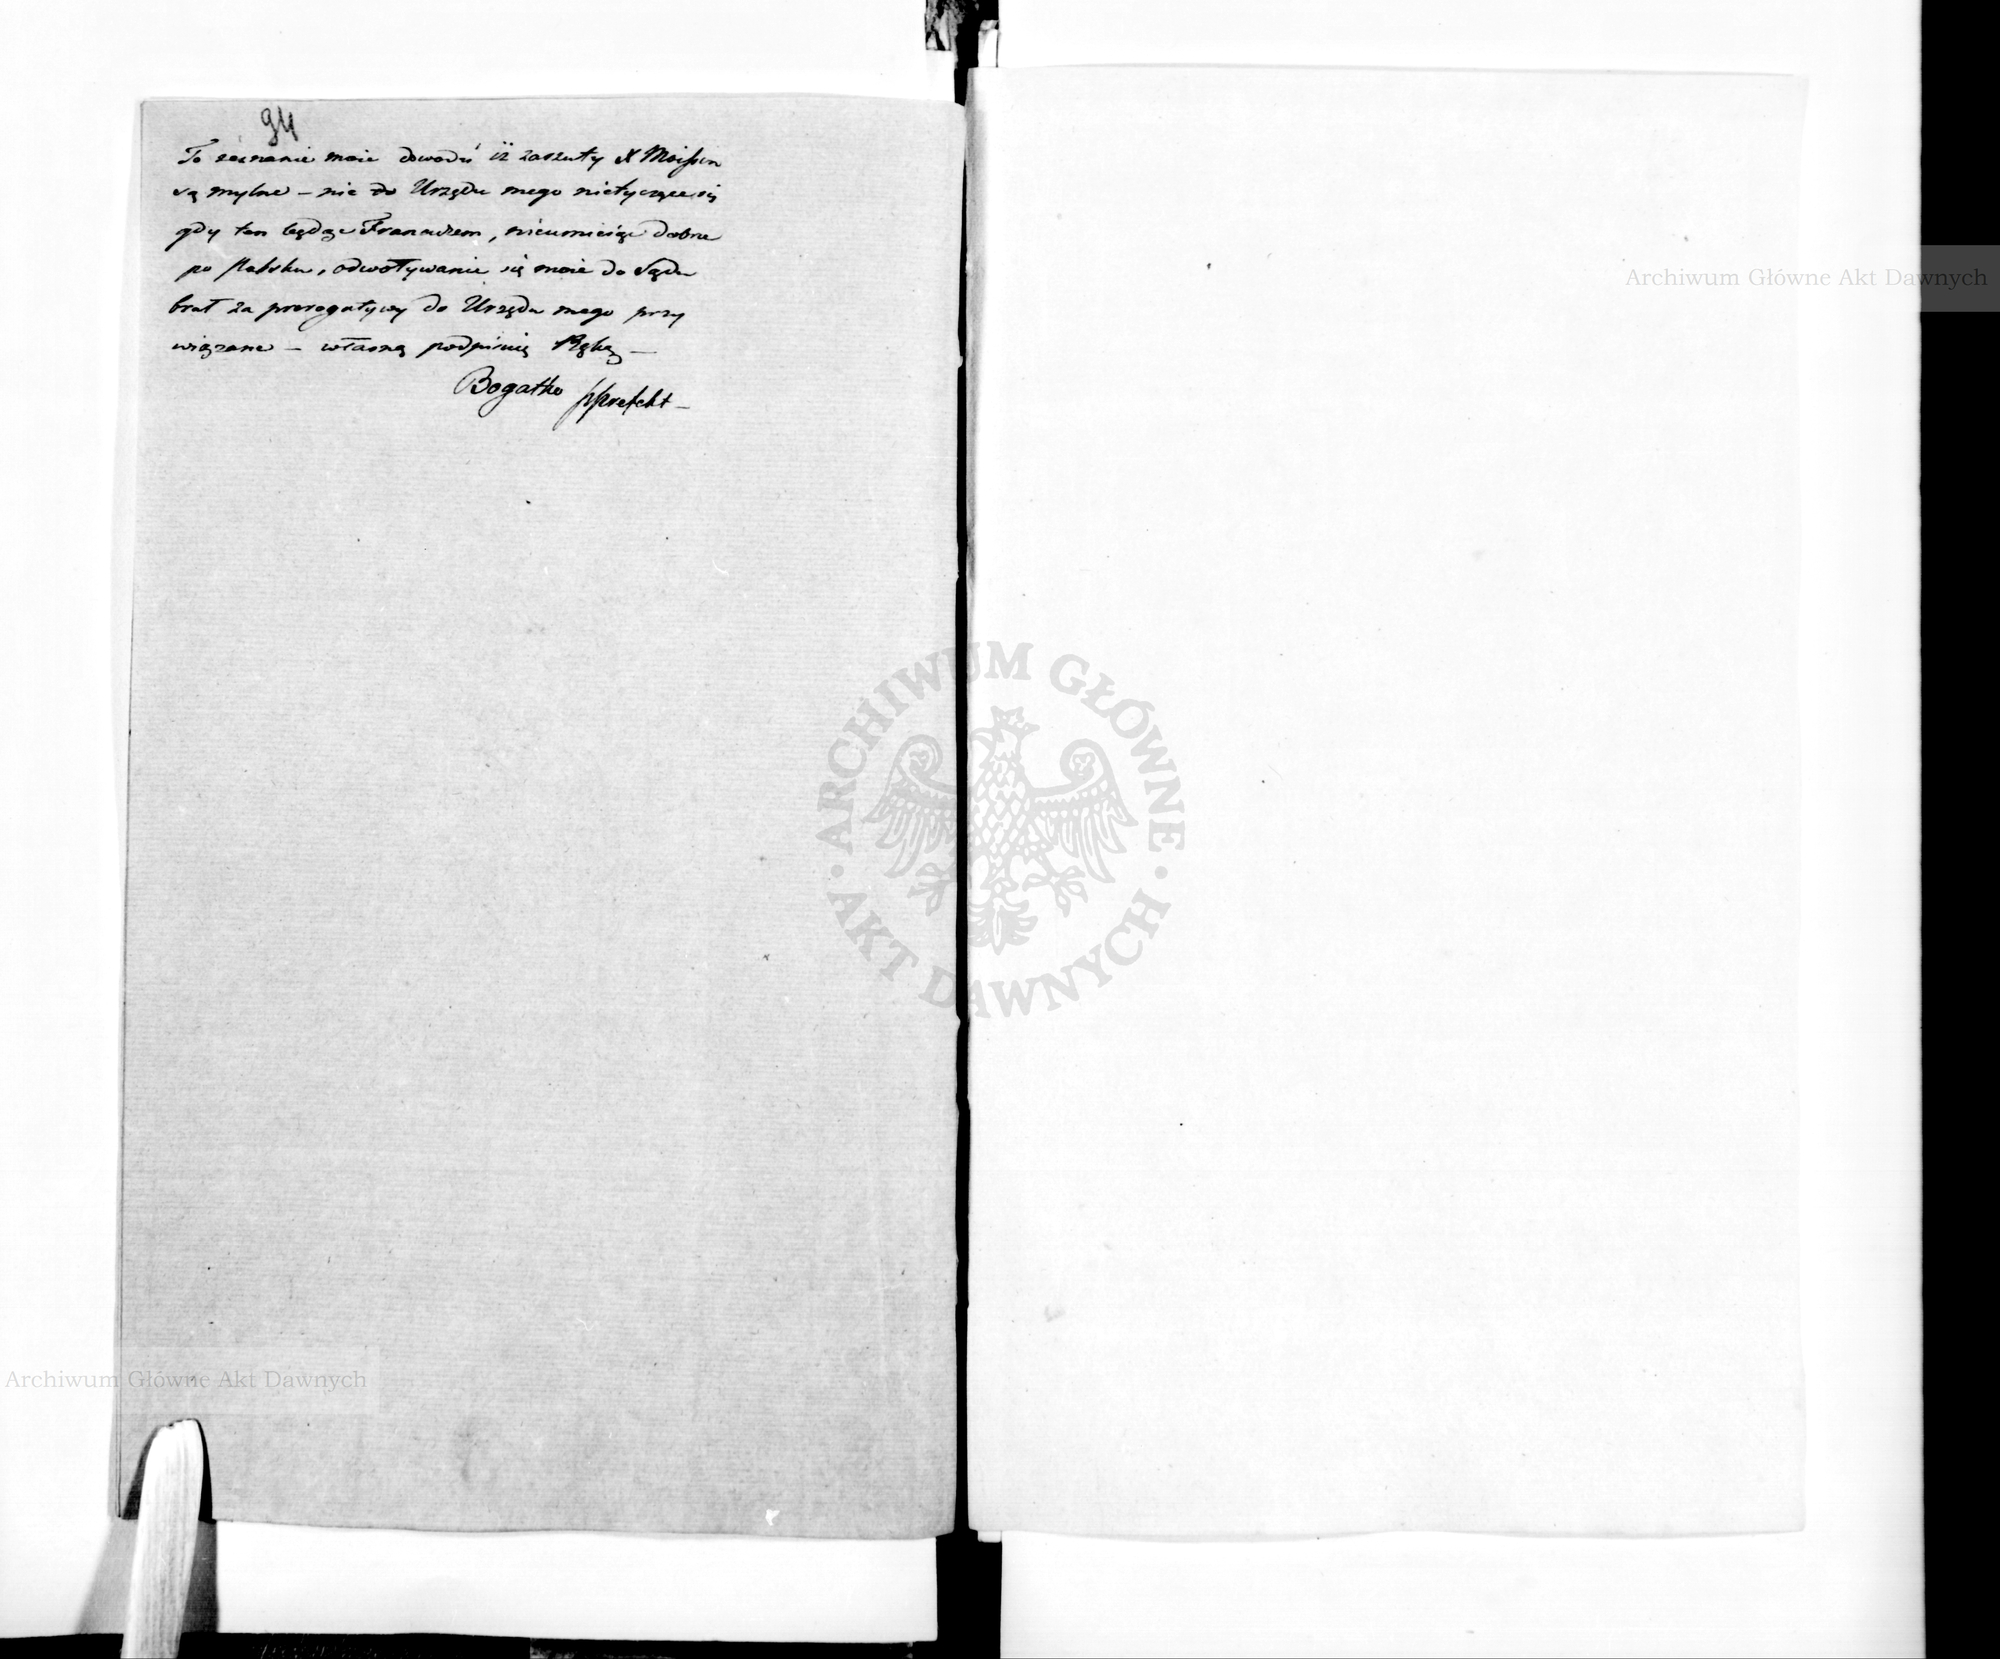 94
To zeznanie moie dowodzi iż zarzuty X Moissin
są mylne – nic do Urzędu mego nietyczące się
gdy ten będąc Francuzem, nieumieiąc dobrze
po Polsku, odwoływanie się moie do Sądu
brał za prerogatywy do Urzędu mego przy
wiązane – własną podpisuię Ręką –
Bogatko pprefekt –
Archiwum Główne Akt Dawnych
ARCHIWUM GŁÓWNE
AKT DAWNYCH
Archiwum Główne Akt Dawnych